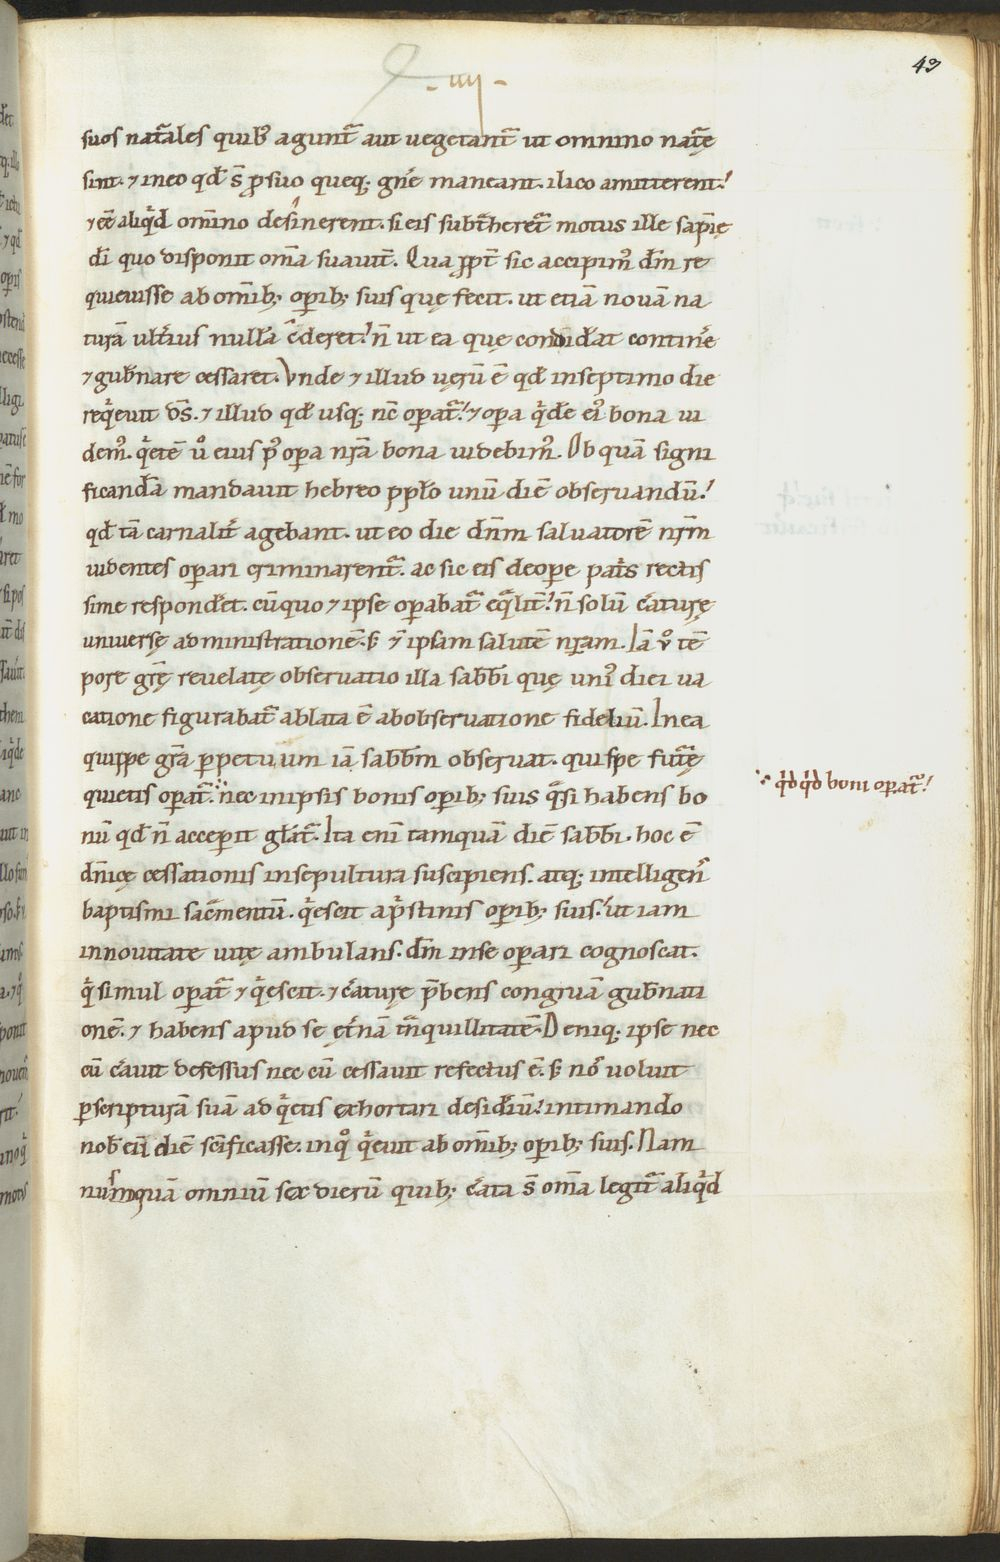 .iiij.
43
suos nat᷑ales quib᷒ agunt᷑ aut uegetant᷑ ut omnino nat᷑ę
sint. ⁊ ineo qđ s̄ ꝓsuo queq; gn̄e maneant. ilico amitterent.
⁊ eē aliqͥd om̄ino desinerent. si eis subt̄heret᷑ motus ille sapn̄ię
dī quo disponit om̄a suauit̄. Qua ꝓpt̄ sic accipim᷒ dm̄ re
quieuisse ab om̄ib; oꝑib; suis quę fecit. ut etiā nouā na
turā ult͛ius nullā c͛deret. n̄ ut ea quę condid͛at contin͛e
⁊ gub͛nare cessaret. Vnde ⁊ illud uerū ē qđ inseptimo die
reqͥeuit ds̄. ⁊ illud qđ usq; nc̄ oꝑat᷑. ⁊ oꝑa qͥdē ei᷒ bona ui
dem᷒. qͥetē u͛o eius p᷒ oꝑa nr̄a bona uidebim᷒. Ob quā signi
ficandā mandauit hebreo ppło unū diē obseruandū.
qđ tā carnalit͛ agebant. ut eo die dn̄m saluatorē nr̄m
uidentes oꝑari criminarent᷑. ac sic eis deoꝑe pat͛s rectis
sime respondet. cū quo ⁊ ipse oꝑabat᷑ eq̄lit᷑. n̄ solū c͛aturę
uniuersę administrationē. s; ⁊ ipsam salutē nr̄am. Iā u͛o tē
pore gr̄ę reuelatę obseruatio illa sabbi quę uni᷒ diei ua
catione figurabat᷑ ablata ē abobseruatione fidelium. Inea
quippe gr̄a ꝑpetuum iā sabbm̄ obseruat. qui spe fut᷑ę
quietis oꝑat᷑. nec inipsis bonis oꝑib; suis q̄si habens bo
qđqđ boni oꝑat᷑.
nū qđ n̄ acceꝑit gł̄at᷑. Ita eni tamquā diē sabbi. hoc ē
dn̄icę cessationis insepultura suscipiens. atq; intelligens
baptismi sac͛mentū. qͥescit ap͛stinis oꝑib; suis. ut iam
innouitate uitę ambulans. dm̄ inse oꝑari cognoscat.
qͥ simul oꝑat᷑ ⁊ qͥescit. ⁊ c͛aturę p̄bens congruā gub͛nati
onē. ⁊ habens apud se ęt͛nā tn̄quillitatē. Deniq; ipse nec
cū c͛auit defessus nec cū cessauit refectus ē. s; nos uoluit
ꝑscripturā suā ad qͥetis exhortari desid͛iū. intimando
nob̄ eū diē sc̄ificasse. inq͂o qͥeuit ab om̄ib; oꝑib; suis. Nam
nusmquā omniū sex dierū quib; c͛ata s̄ om̄a legit᷑ aliqͥd